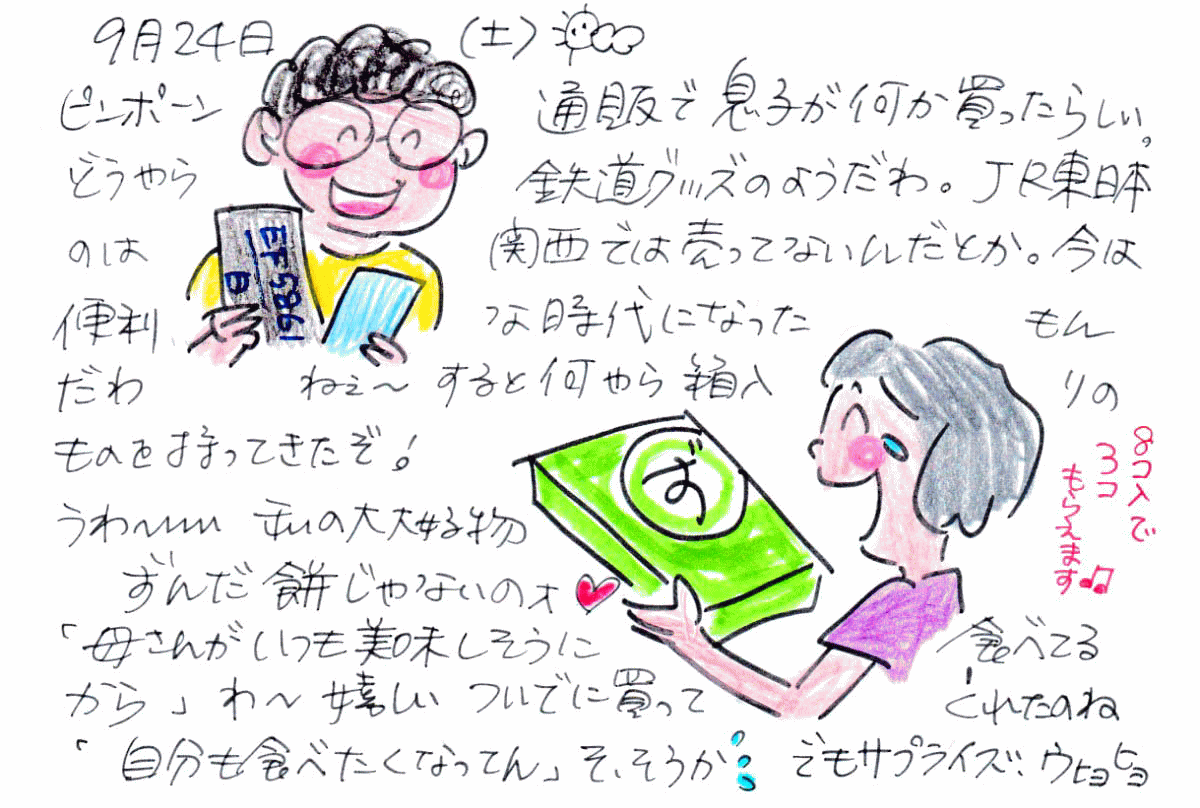 9月24日 (土)
ピンポーン 通販で息子が何か買ったらしい。
どうやら 鉄道グッズのようだわ。JR東日本
のは 関西では売ってないんだとか。今は
便利 な時代になった もん
だわ ねぇ～ すると何やら箱入 りの
ものを持ってきたぞ!
うわ～ 私の大大好物
ずんだ餅じゃないのォ
「母さんがいつも美味しそうに 食べてる
から」わ～嬉しい ついでに買って くれたのね
「自分も食べたくなってん」そ、そうか でもサプライズ、ウヒョヒョ
EF5861
日
ず
8コ入で
3コ
もらえます♫